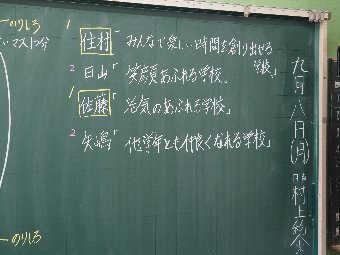 のりしろ
1 住村「みんなで楽しい時間を創り出せる学校」
2 日山「笑顔あふれる学校」
1 佐藤「活気のあふれる学校」
2 矢嶋「他学年とも仲良くなれる学校」
のりしろ
九月八日(月)日直村上